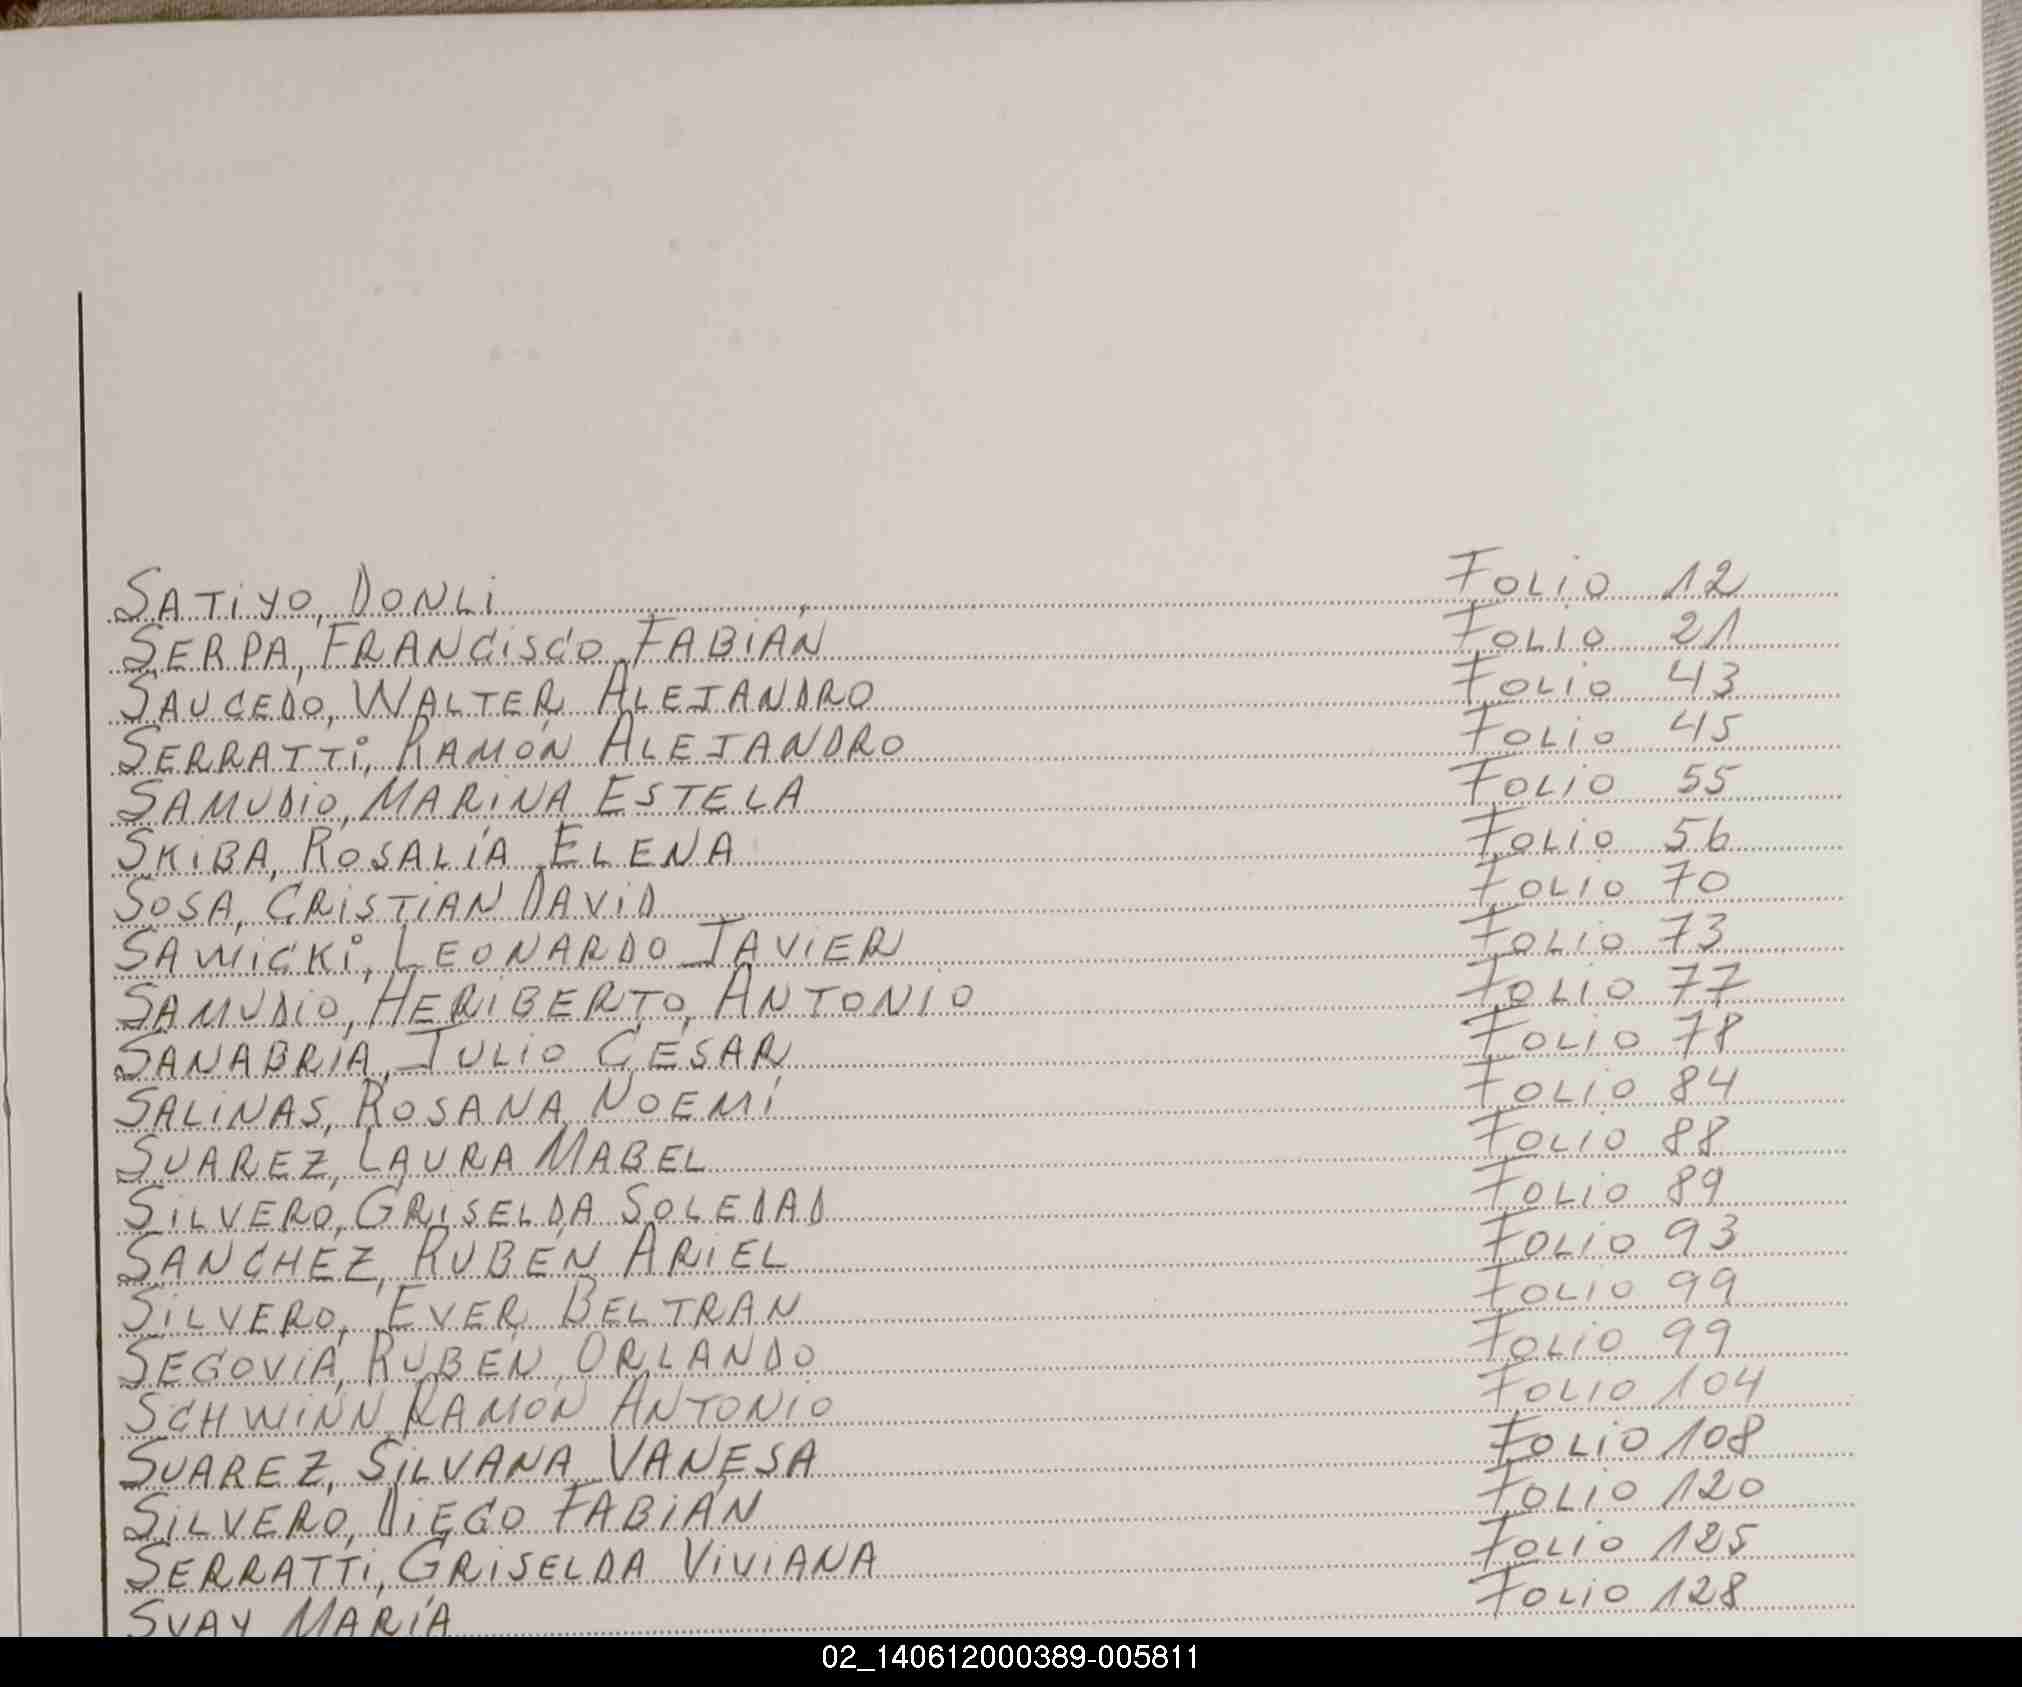 SATIYO, DONLI Folio 12
SERPA, FRANCISCO FABIÁN Folio 21
SAUCEDO, WALTER ALEJANDRO Folio 43
SERRATTI, RAMÓN ALEJANDRO Folio 45
SAMUDIO, MARINA ESTELA Folio 55
SKIBA, ROSALÍA ELENA Folio 56
SOSA, CRISTIAN DAVID Folio 70
SAWICKI, LEONARDO JAVIER Folio 73
SAMUDIO, HERIBERTO ANTONIO Folio 77
SANABRIA, JULIO CESAR Folio 78
SALINAS, ROSANA NOEMÍ Folio 84
SUAREZ, LAURA MABEL Folio 88
SILVERO, GRISELDA SOLEDAD Folio 89
SANCHEZ, RUBÉN ARIEL Folio 93
SILVERO, EVER BELTRAN Folio 99
SEGOVIA, RUBEN ORLANDO Folio 99
SCHWINN, RAMÓN ANTONIO Folio 104
SUAREZ, SILVANA VANESA Folio 108
SILVERO, DIEGO FABIÁN Folio 120
SERRATTI, GRISELDA VIVIANA Folio 125
SVAY MARÍA Folio 128
02_140612000389-005811